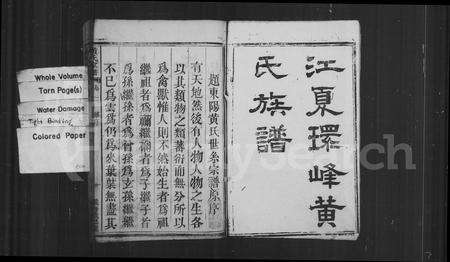 江夏環峰黄
氏族譜
題東陽黄氏世系宗譜原序
有天地然後有人物人物之生各
以其類物之類蕃衍而無分所以
為禽獸惟人則不然始生者為祖
繼祖者為禰繼禰者為子繼子者
為孫繼孫者為曾孫為玄孫繼繼
不已為雲為仍為來葉葉無盡其
Whole Volume
Torn Page(s)
Water Damage
Tight Binding
Colored Paper